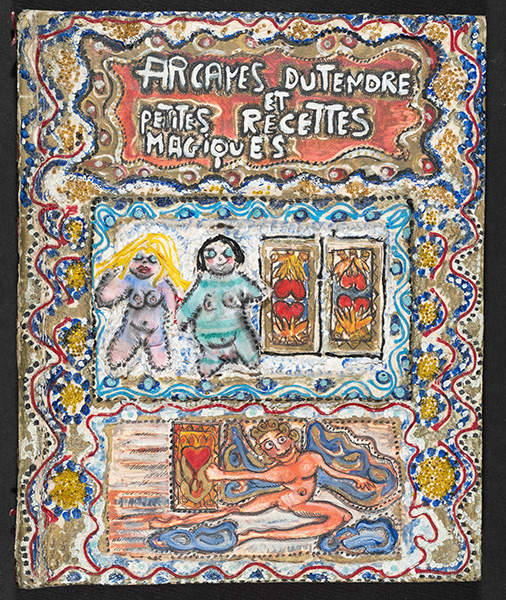 ARCANES DU TENDRE
ET
PETITES RECETTES
MAGIQUES